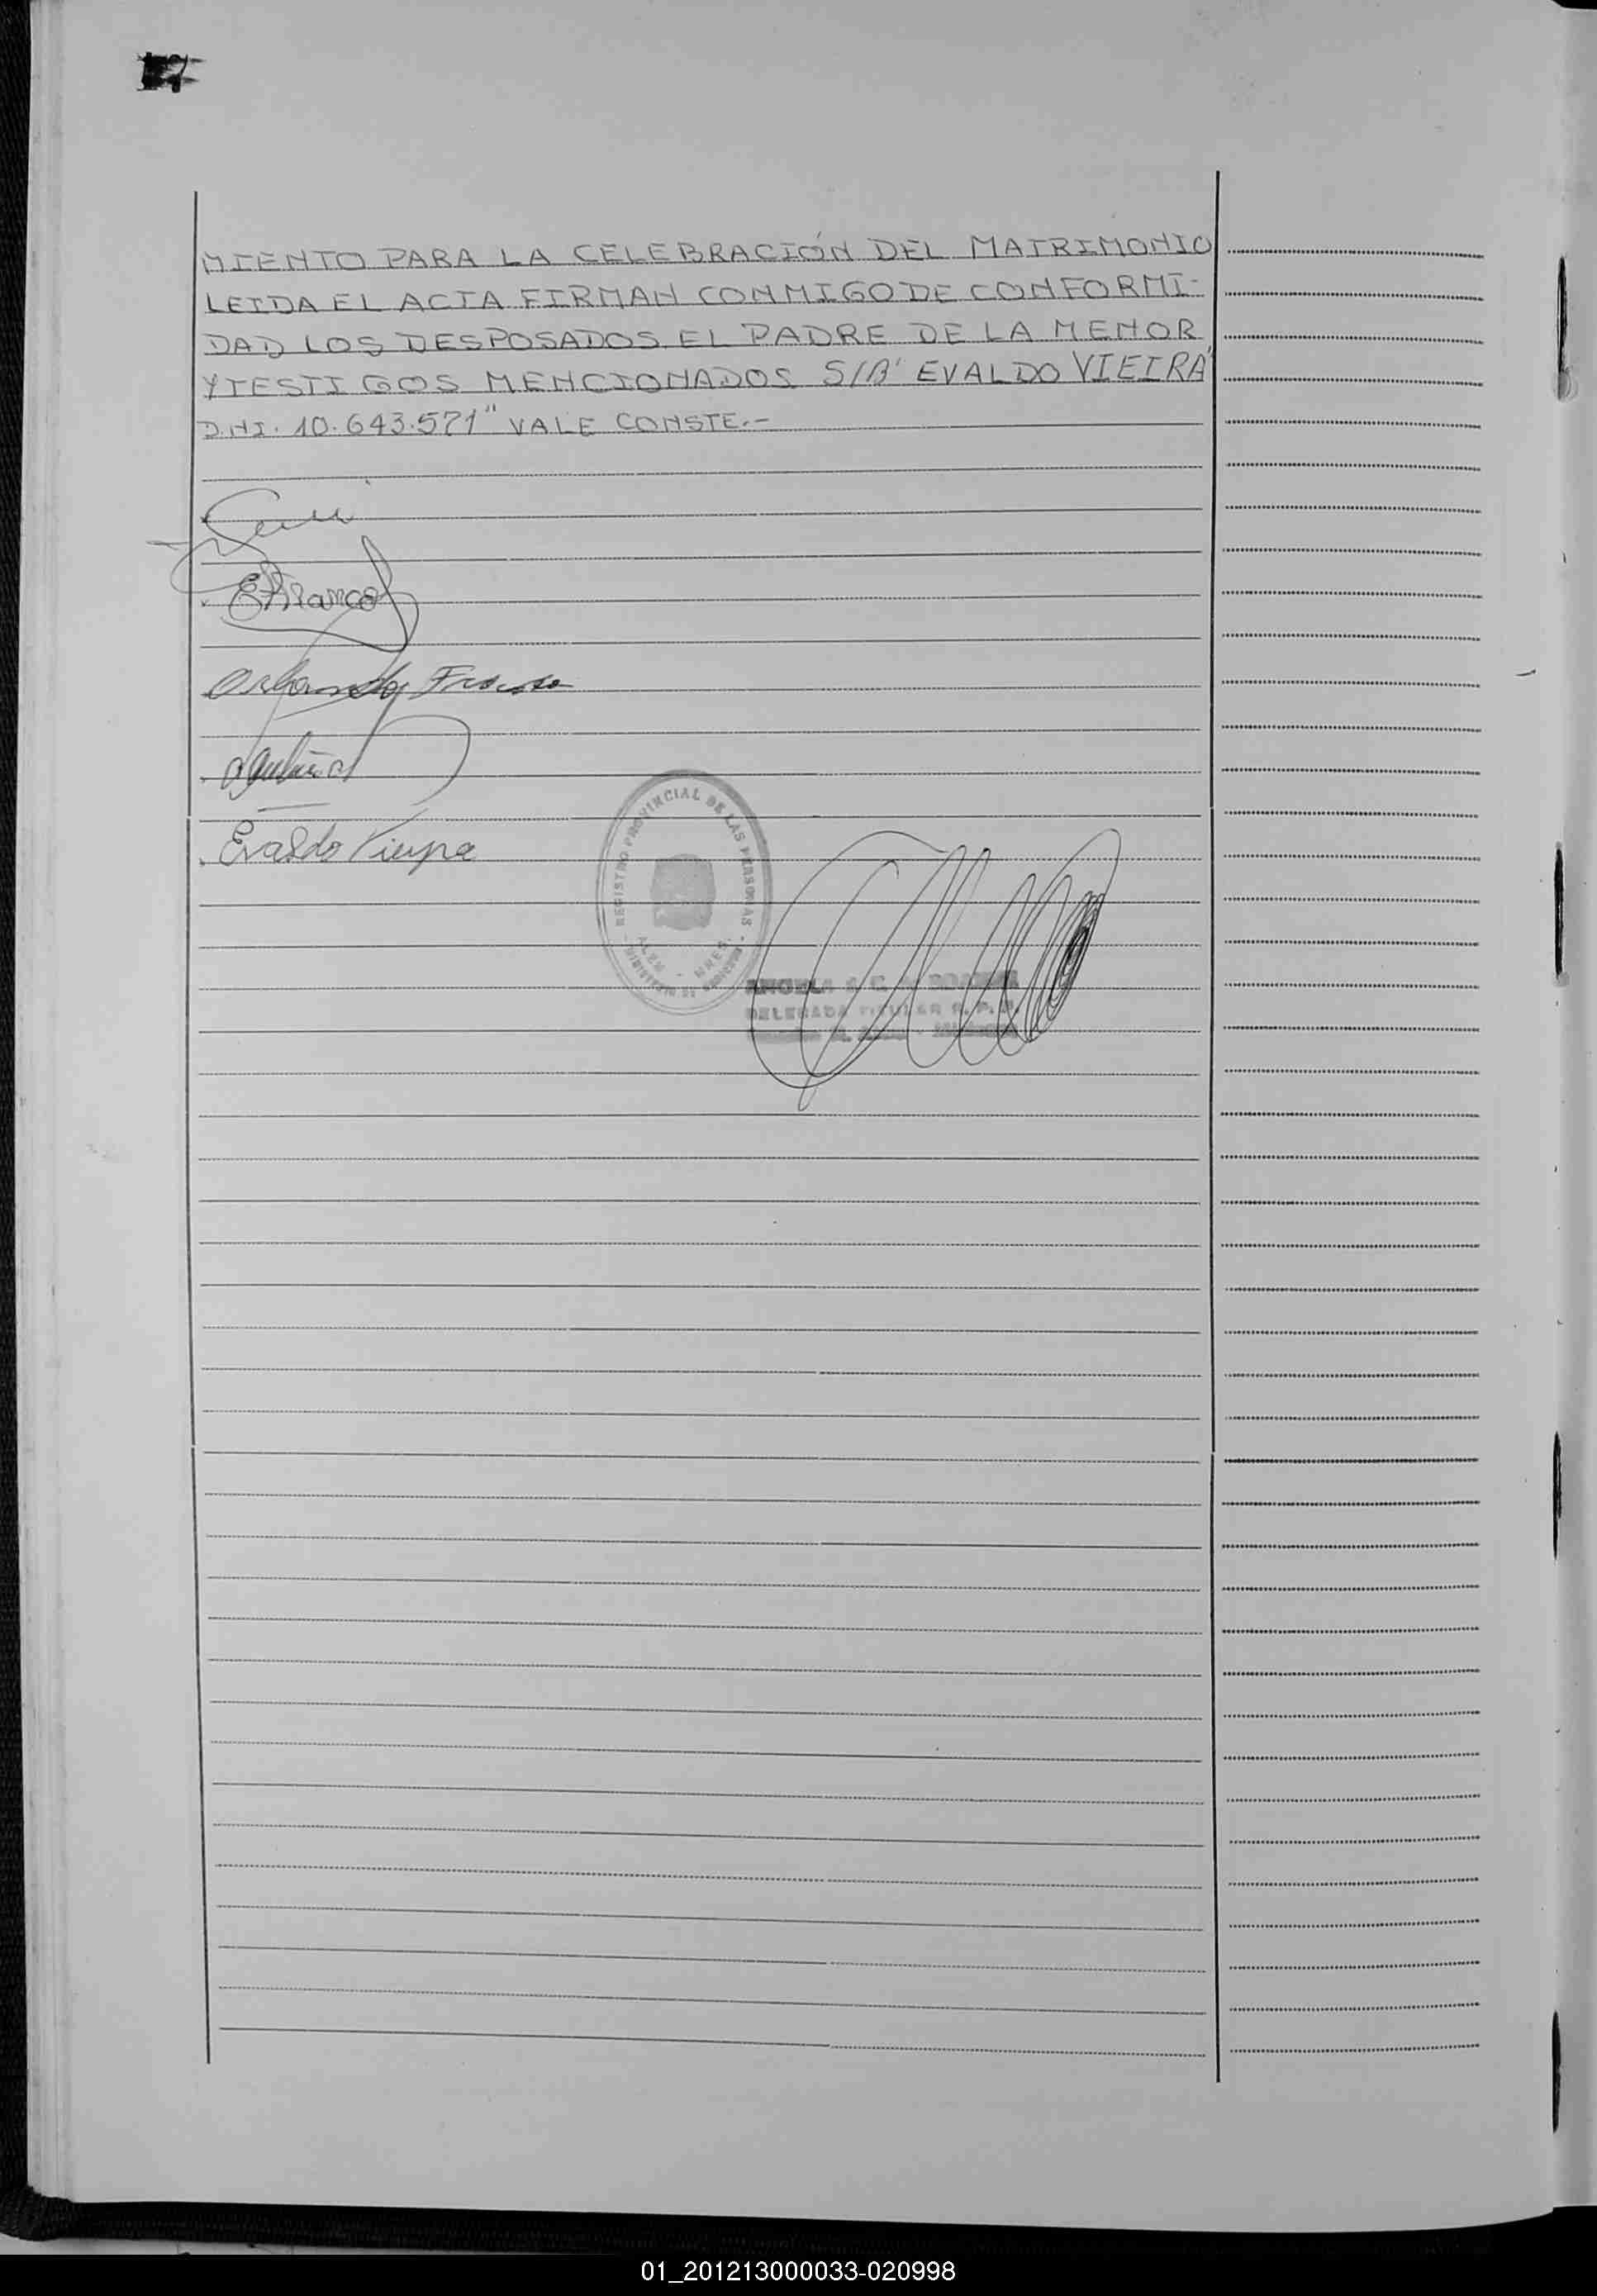 MIENTO PARA LA CELEBRACIÓN DEL MATRIMONIO
LEIDA EL ACTA FIRMAN CONMIGO DE CONFORMI-
DAD LOS DESPOSADOS EL PADRE DE LA MENOR
Y TESTIGOS MENCIONADOS S/B" EVALDO VIEIRA
D.N.I. 10.643.571" VALE CONSTE.-
EFranco
Orlando Franco
Evaldo Vieira
REGISTRO PROVINCIAL DE LAS PERSONAS
ALEM - MNES.
MINISTERIO DE GOBIERNO
ANGELA
DELEGADA TITULAR R. P. P.
01_201213000033-020998